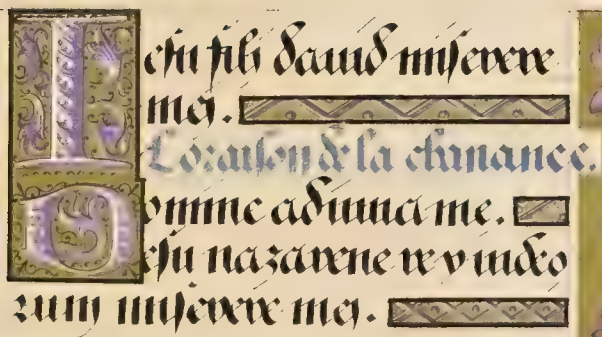 Iesu fili dauid miserere
mei.
Loraison de la chananee.
Domine adiuua me.
Iesu nazarene rex iudeo
rum miserere mei.